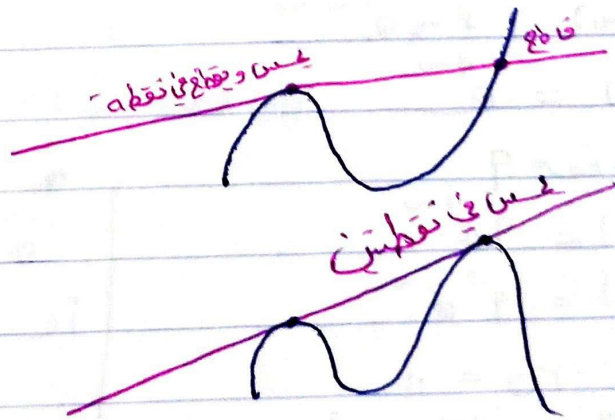 قاطع
يمس ويقطع في نقطة
يمس في نقطتين